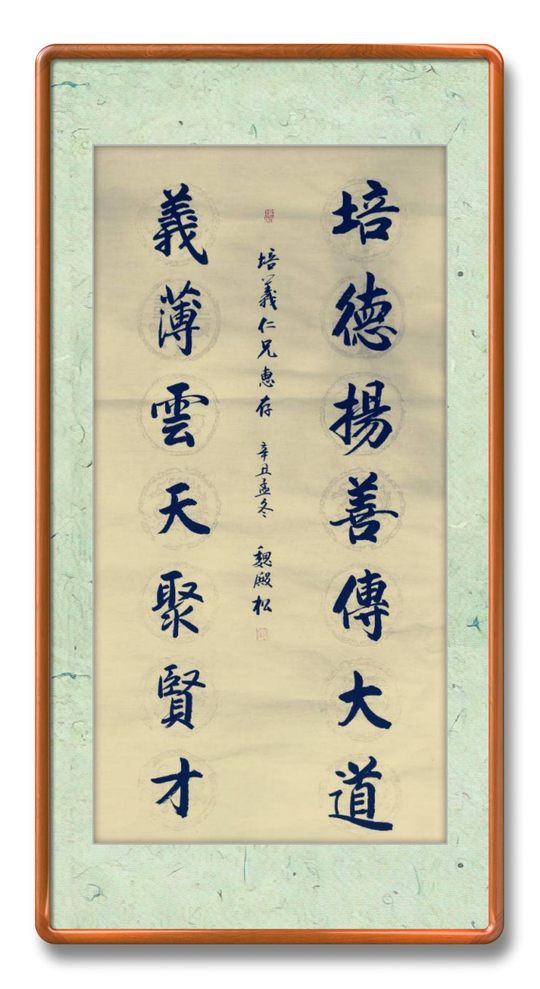 培德揚善傳大道
培義仁兄惠存 辛丑孟冬 魏殿松
義薄雲天聚賢才